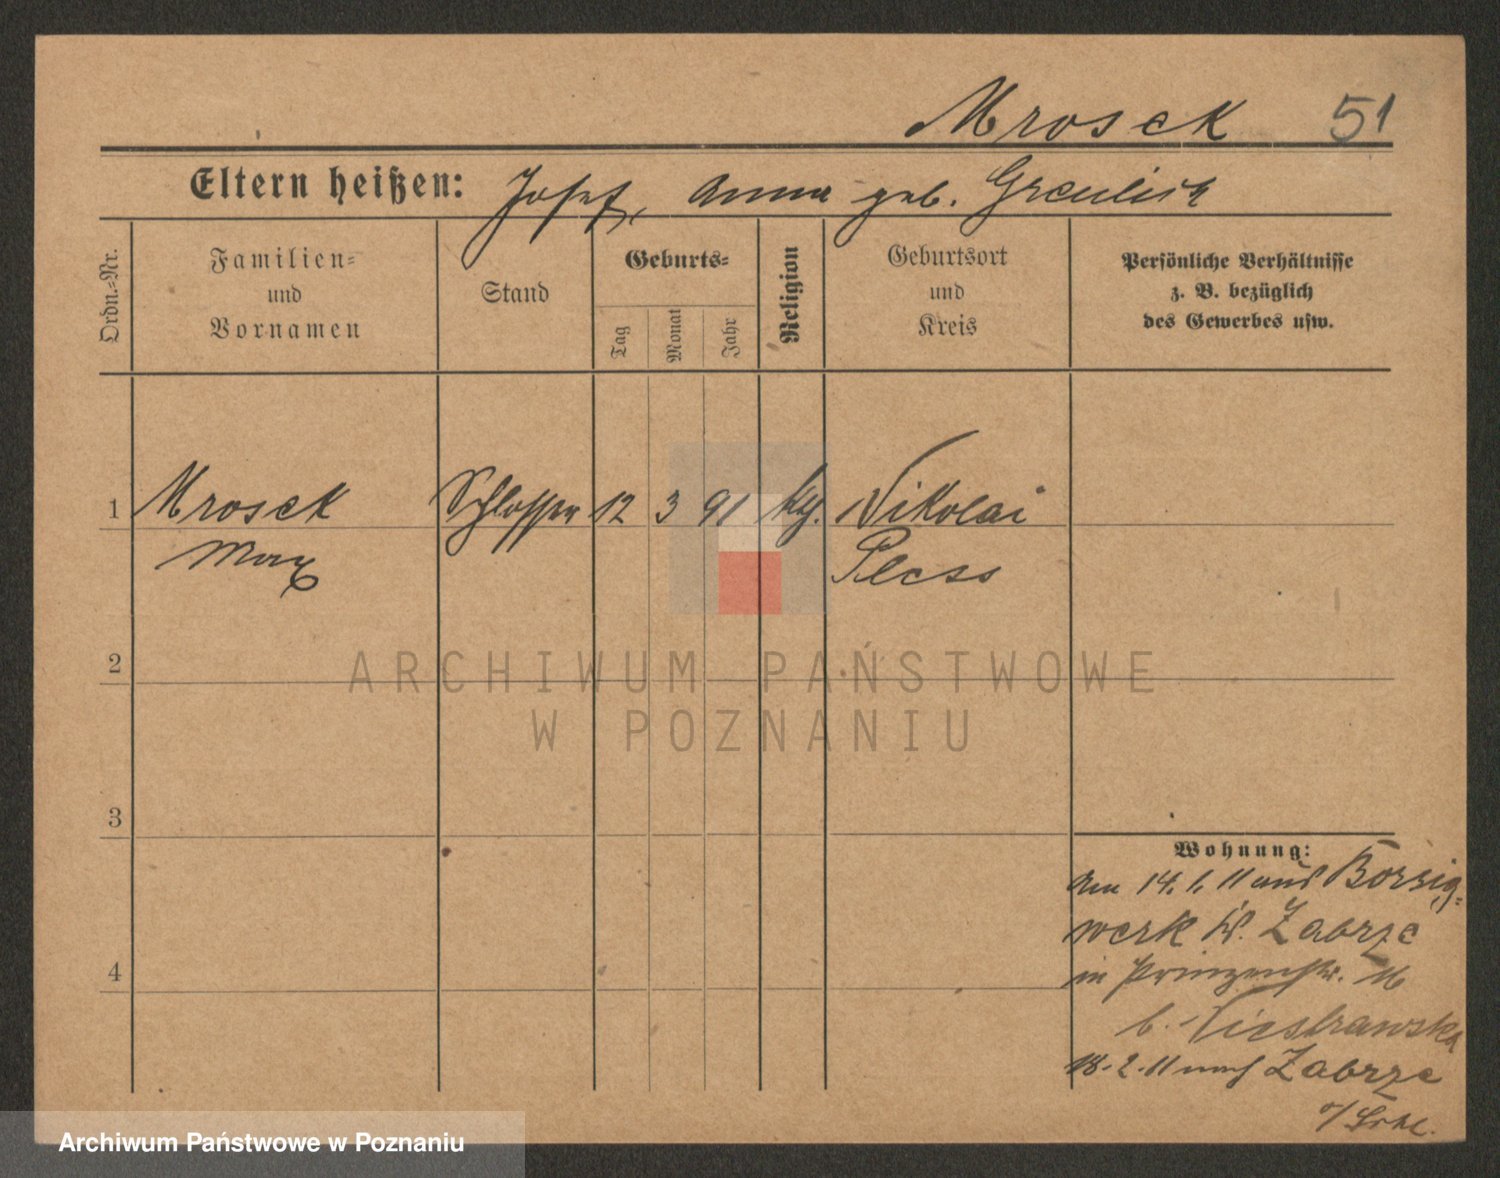 Mroseck 51
Eltern heißen: Josef, Anna geb. Greulich
Ordn.-Nr.
Familien-
und
Vornamen
Stand
Geburts-
Tag
Monat
Jahr
Religion
Geburtsort
und
Kreis
Persönliche Verhältnisse
z. B. bezüglich
des Gewerbes usw.
1 Mroseck Schlosser 12 3 91 kth. Nikolai
Max Pless
2
3
4
Wohnung:
Am 14.1.11 aus Borsig-
werk Kr. Zabrze
in Prinzenstr.
b.
18.2.11 nach Zabrze
ARCHIWUM PAŃSTWOWE
W POZNANIU
Archiwum Państwowe w Poznaniu